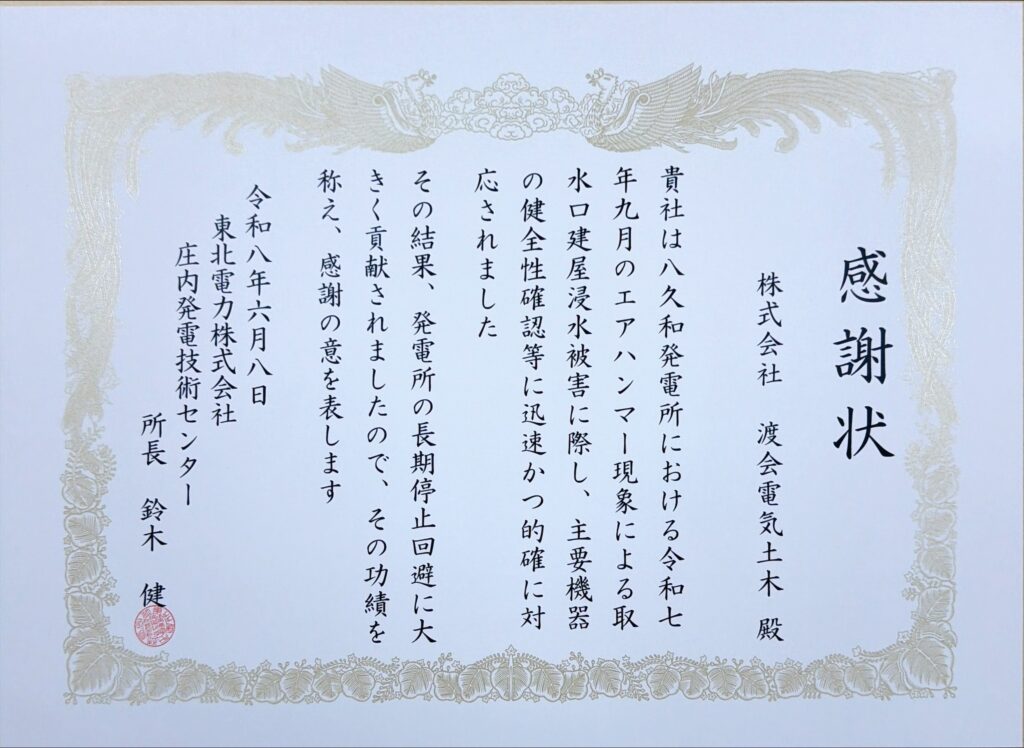 感謝状
株式会社 渡会電気土木 殿
貴社は八久和発電所における令和七
年九月のエアハンマー現象による取
水口建屋浸水被害に際し、主要機器
の健全性確認等に迅速かつ的確に対
応されました
その結果、発電所の長期停止回避に大
きく貢献されましたので、その功績を
称え、感謝の意を表します
令和八年六月八日
東北電力株式会社
庄内発電技術センター
所長 鈴木 健